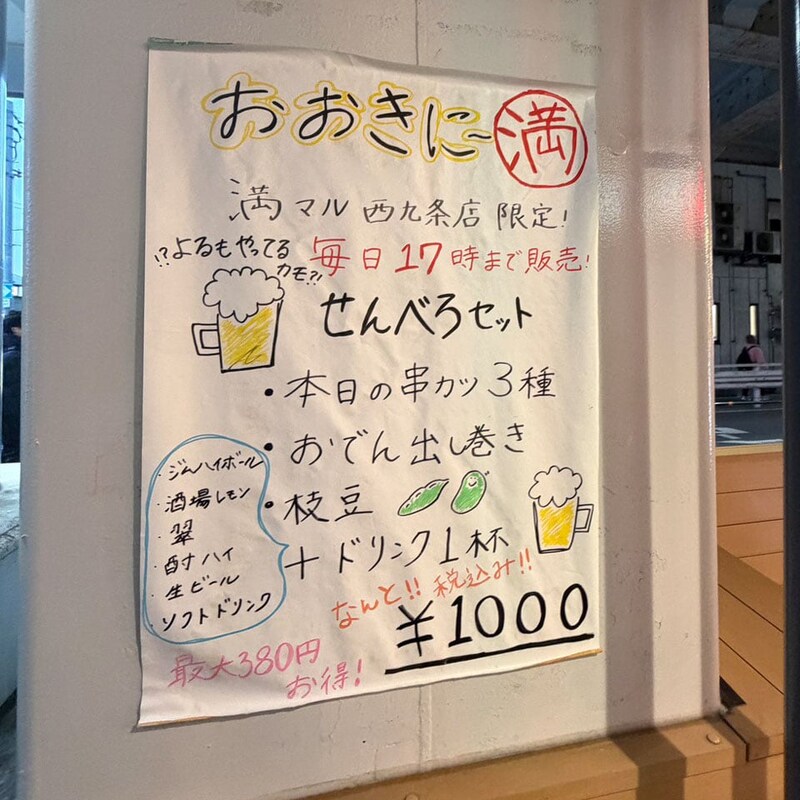 おおきに〜満
満マル 西九条店 限定!
!?よるもやってるカモ?!
毎日17時まで販売!
せんべろセット
・本日の串カツ3種
・おでん出し巻き
・枝豆
+ドリンク1杯
・ジムハイボール
・酒場レモン
・翠
・酎ハイ
・生ビール
・ソフトドリンク
なんと!!税込み!!
¥1000
最大380円
お得!